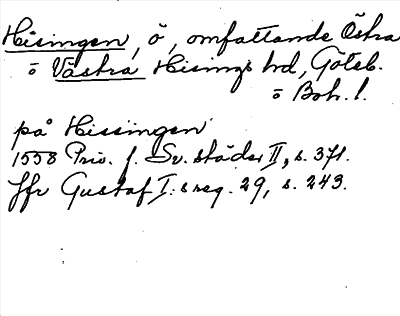 Hisingen, ö, omfattande Östra
o Västra Hisings hd, Göteb.
o Boh. l.
på Hissingen
1558 Priv. f. Sv. städer II, s. 371.
Jfr Gustaf I:s reg. 29, s. 243.